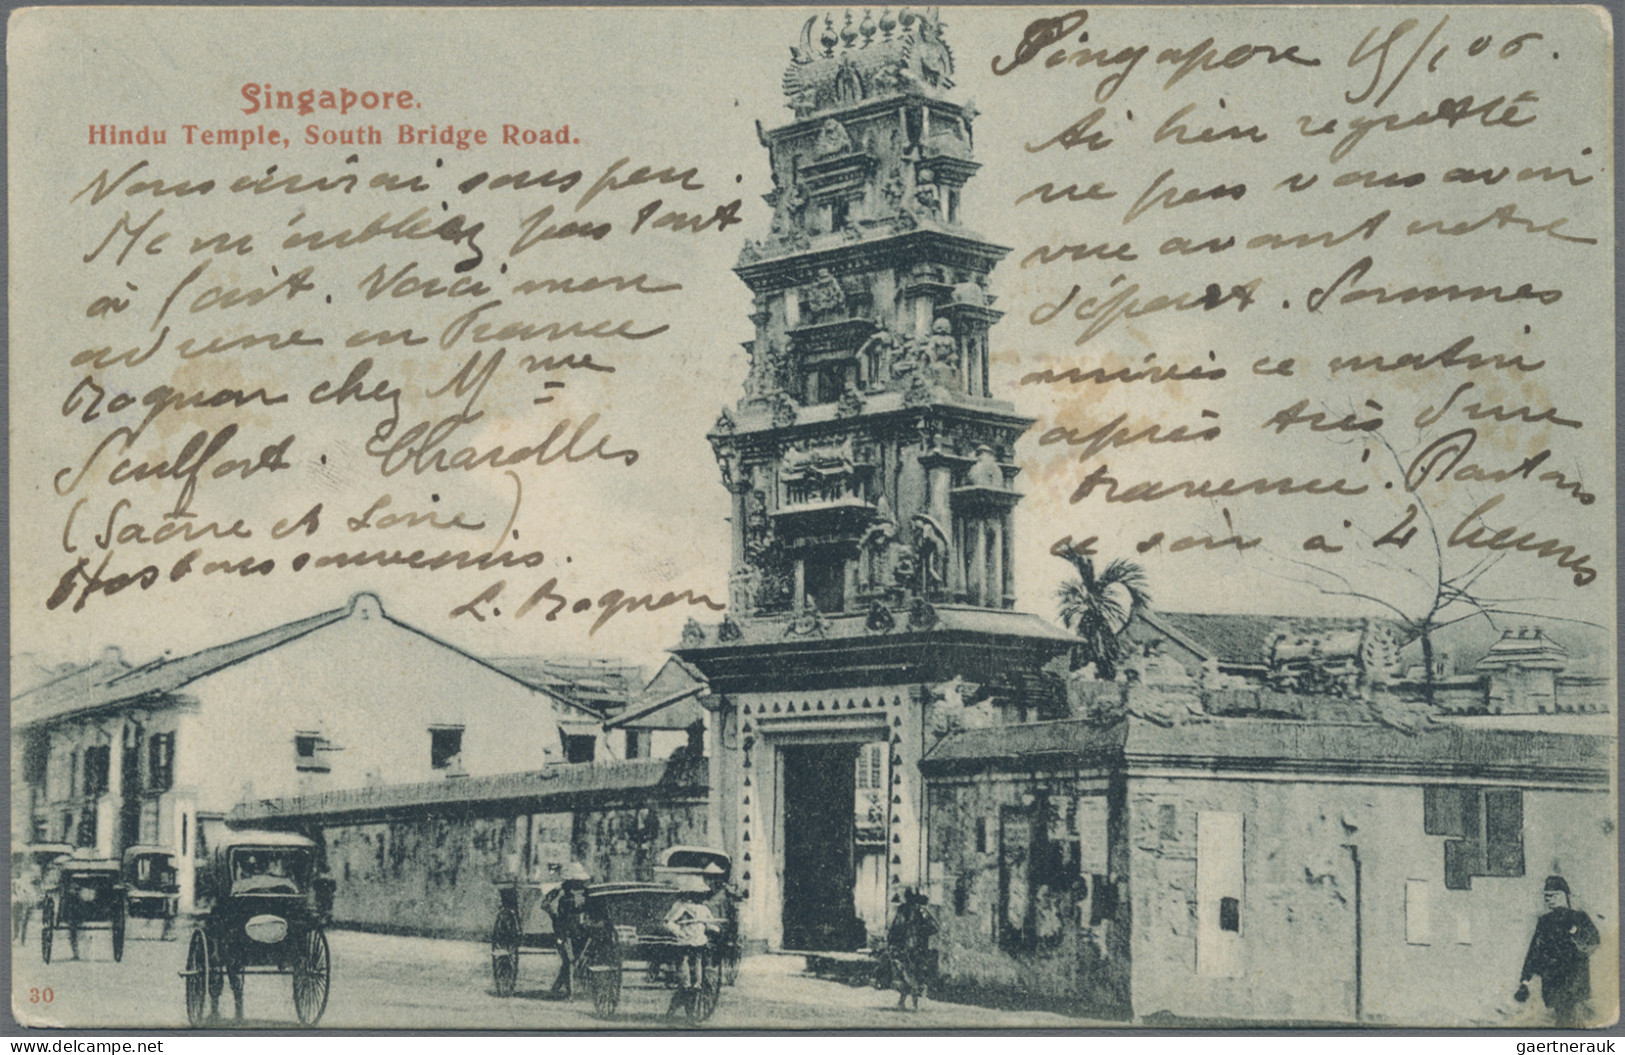 Singapore.
Hindu Temple, South Bridge Road.
Singapore 15/1 06.
Ai bien regretté
ne pas vous avoir
vue avant votre
départ. Sommes
arrivés ce matin
après très dure
traversée. Partons
ce soir à 4 heures
Vous écrirai sous peu.
Ne m'oubliez pas tout
à fait. Voici mon
adresse en France
Rognon chez Mme
Charolles
(Saône et Loire)
bons souvenirs.
L. Rognon
30
gaertnerauk
delcampe.net